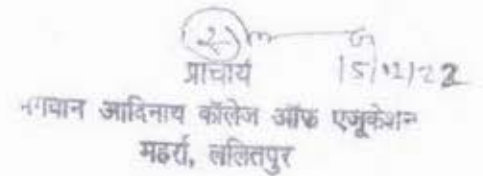 प्राचार्य 15/12/22
भगवान आदिनाथ कॉलेज ऑफ एजूकेशन
महर्रा, ललितपुर